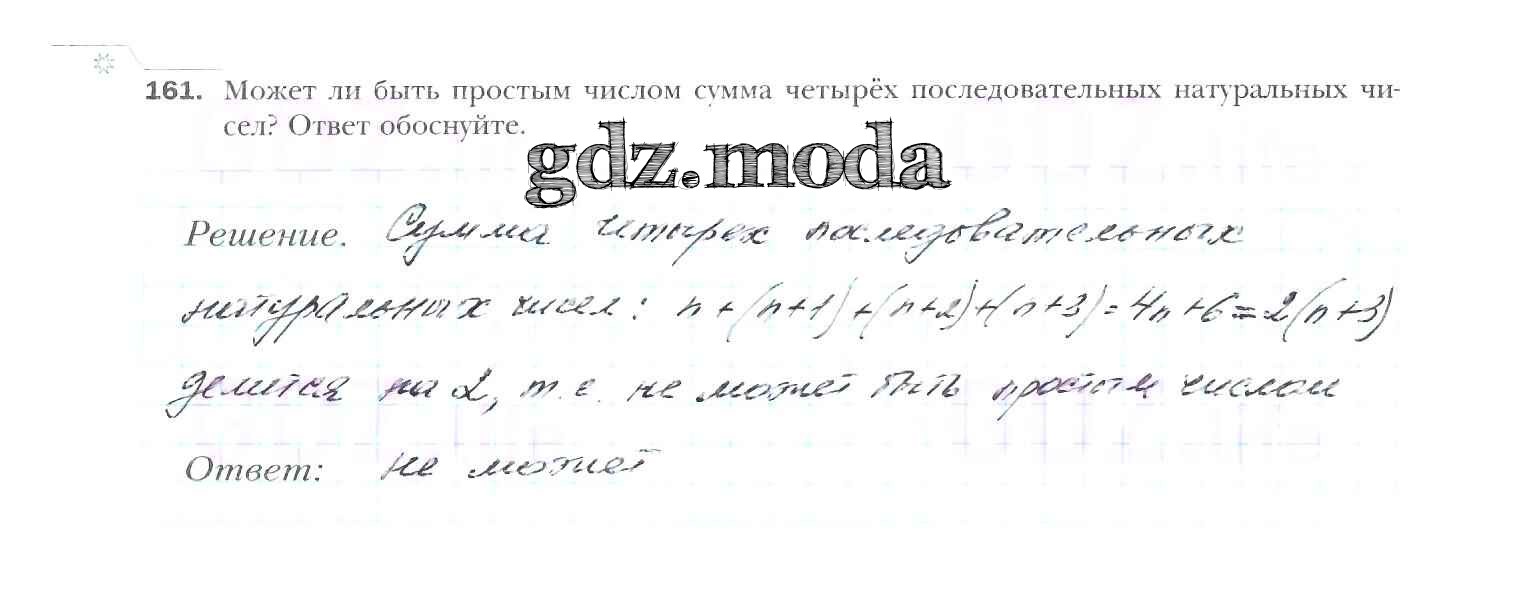 161. Может ли быть простым числом сумма четырёх последовательных натуральных чи-
сел? Ответ обоснуйте.
gdz.moda
Решение. Сумма четырех последовательных
натуральных чисел: n+(n+1)+(n+2)+(n+3)=4n+6=2(n+3)
делится на 2, т.е. не может быть простым числом
Ответ: не может